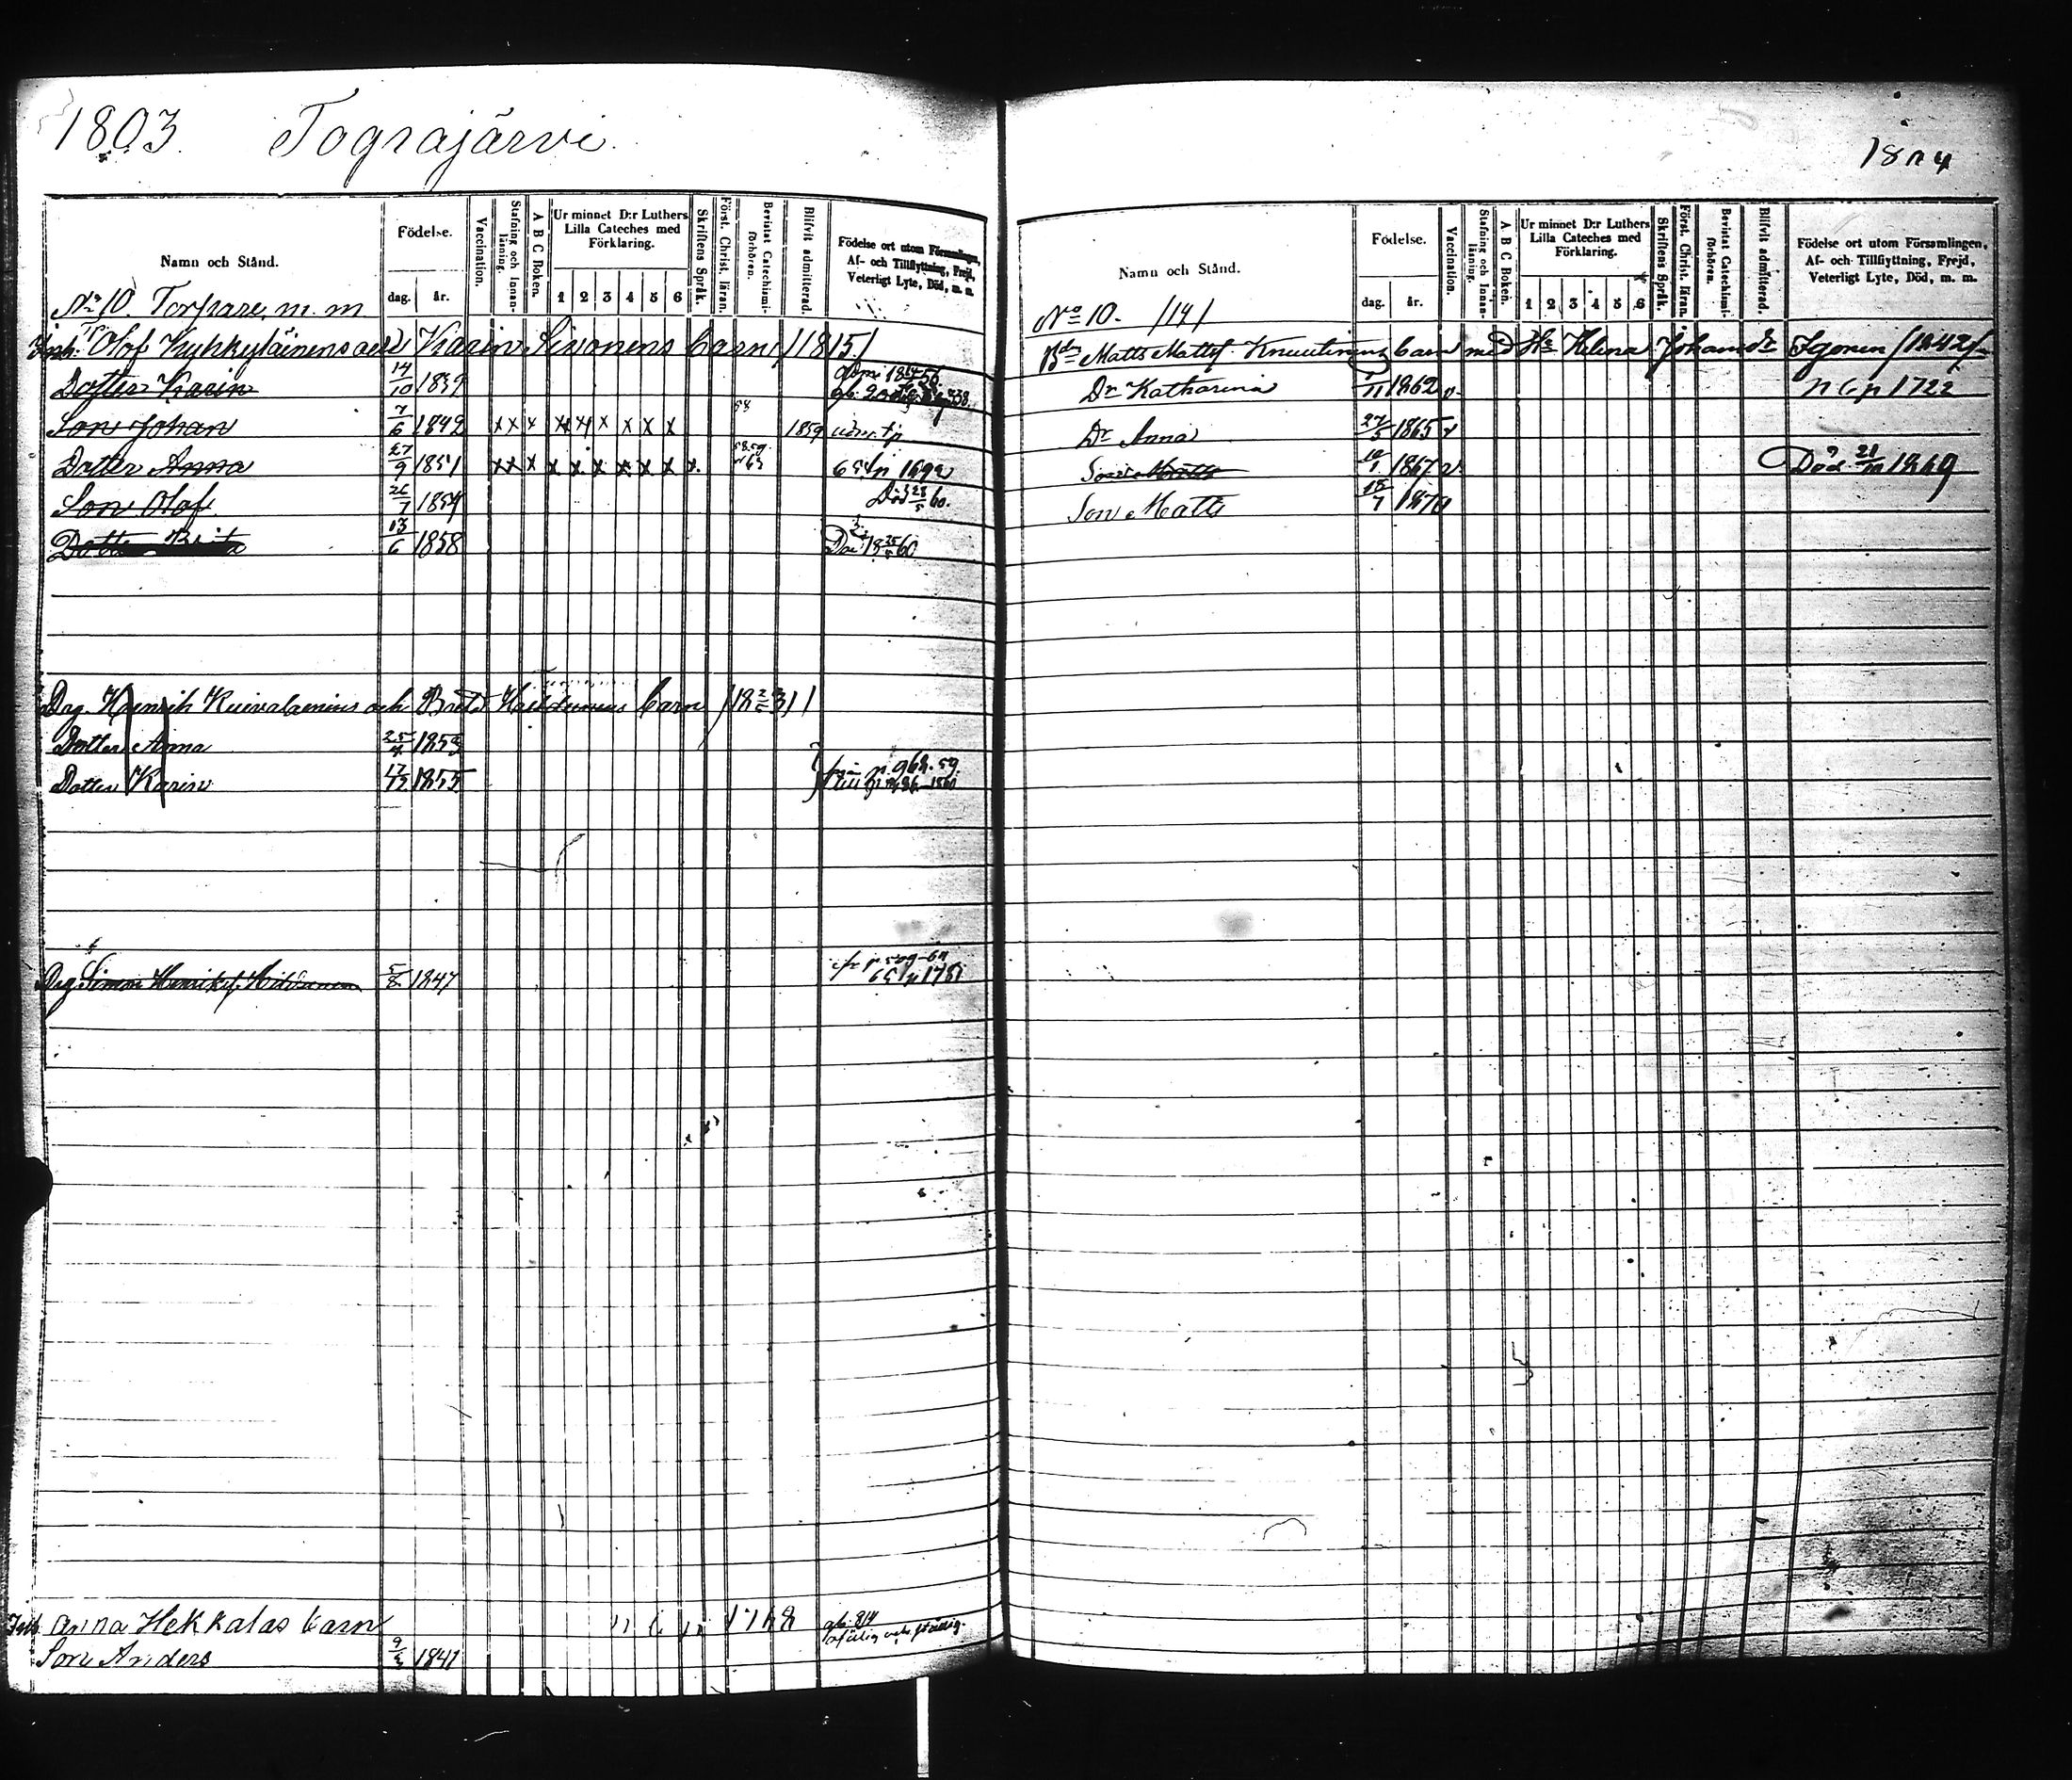 1803. Tograjärvi.
Namn och Stånd.
Födelse.
dag. år.
Vaccination.
Stafning och Innanläsning.
A B C Boken.
Ur minnet D:r Luthers Lilla Cateches med Förklaring.
1 2 3 4 5 6
Skriftens Språk.
Först. Christ. läran.
Bevistat Catechismiförhören.
Blifvit admitterad.
Födelse ort utom Församlingen, Af- och Tillflyttning, Frejd, Veterligt Lyte, Död, m. m.
No 10. Torpare, m. m
Inh. Olof Kykkyläinens och Karin Sivonens barn /1815/
Dotter Karin 14/10 1839
Son Johan 7/6 1842 x x x x x x x x x 58 1859
Dotter Anna 27/9 1851 x x x x x x x x x x 58.59 63 65 p 1692
Son Olof 26/7 1854 Död 28/5 60.
Dotter Brita 13/6 1858 60
Drg. Henrik Kuivalainens och Brita barn
Dotter Anna 25/4 1853
Dotter Karin 17/12 1855 p. 962. 59
Drg Simon Henriksf. Hiltunen 5/8 1847 p 509-60 65/p 1781
Inh Anna Hekkalas barn 1768 814
Son Anders 9/3 1841
1804
Namn och Stånd.
Födelse.
dag. år.
Vaccination.
Stafning och Innanläsning.
A B C Boken.
Ur minnet D:r Luthers Lilla Cateches med Förklaring.
1 2 3 4 5 6
Skriftens Språk.
Först. Christ. läran.
Bevistat Catechismiförhören.
Blifvit admitterad.
Födelse ort utom Församlingen, Af- och Tillflyttning, Frejd, Veterligt Lyte, Död, m. m.
No 10. /14/
Bdn Matts Mattsf. Knuutinens barn med Hu Helena Johansdr Igonen /1842/
Dr Katharina 11 1862 v. p 1722
Dr Anna 27/5 1865 v
Son Matts 10/1 1867 v. Död 21/10 1869
Son Matts 15/7 1870